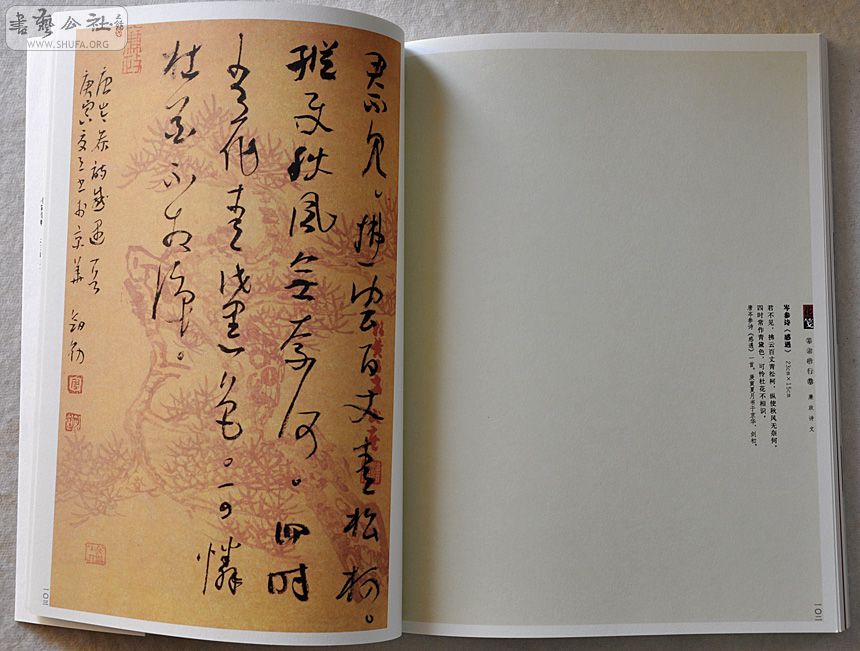 書藝公社
WWW.SHUFA.ORG
廉政诗文
岑参诗《感遇》 23cm×15cm
君不见，拂云百丈青松柯，纵使秋风无奈何。
四时常作青黛色，可怜杜花不相识。
唐岑参诗《感遇》一首。庚寅夏月书于京华，剑初。
一〇二
君不見。拂雲百丈青松柯。
縱使秋風無奈何。四時
常作青黛色。可憐
杜花不相識。
唐岑參詩感遇一首
庚寅夏月書於京華 劍初
一〇三